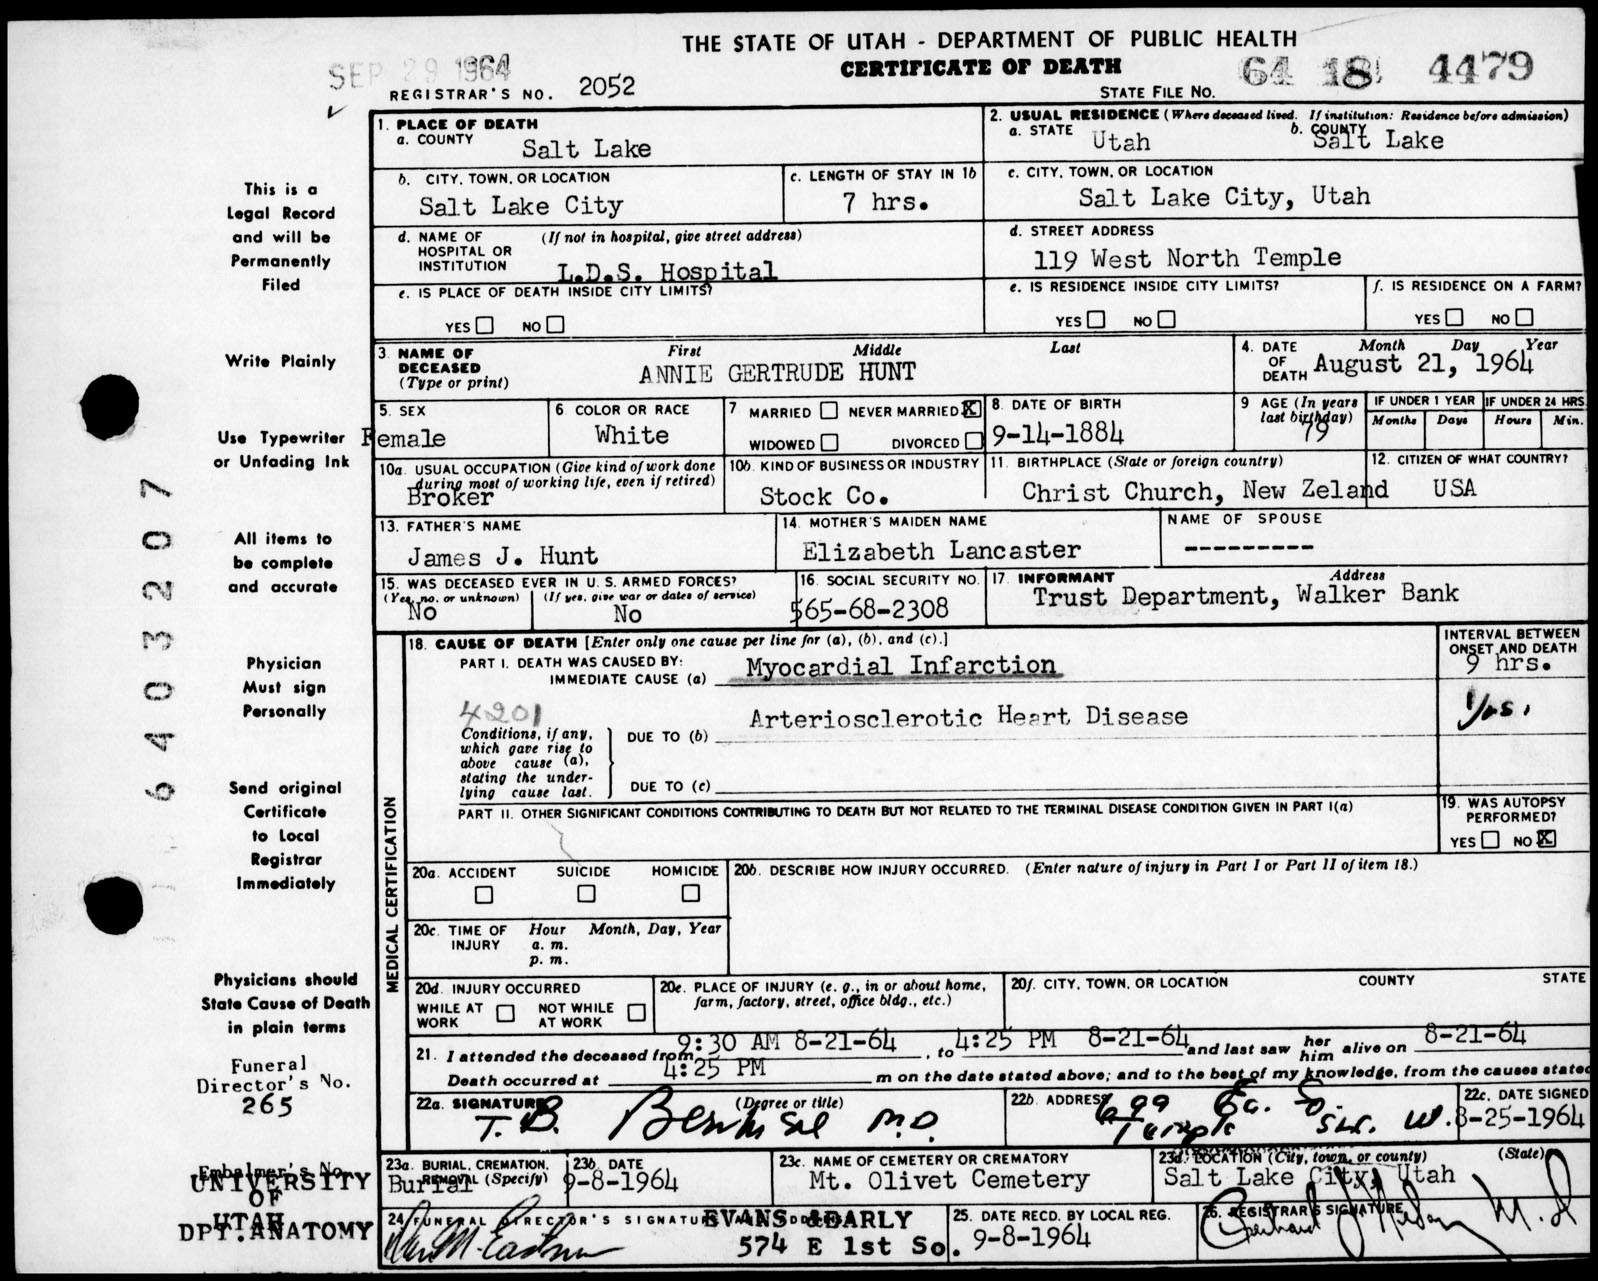 THE STATE OF UTAH - DEPARTMENT OF PUBLIC HEALTH
CERTIFICATE OF DEATH
SEP 29 1964
REGISTRAR'S NO. 2052
STATE FILE NO. 64 18 4479
This is a
Legal Record
and will be
Permanently
Filed
Write Plainly
Use Typewriter
or Unfading Ink
All items to
be complete
and accurate
Physician
Must sign
Personally
Send original
Certificate
to Local
Registrar
Immediately
Physicians should
State Cause of Death
in plain terms
Funeral
Director's No.
265
Embalmer's No.
UNIVERSITY
OF
UTAH
DPT. ANATOMY
6403207
1. PLACE OF DEATH
a. COUNTY
Salt Lake
2. USUAL RESIDENCE (Where deceased lived. If institution: Residence before admission)
a. STATE Utah
b. COUNTY Salt Lake
b. CITY, TOWN, OR LOCATION
Salt Lake City
c. LENGTH OF STAY IN 1b
7 hrs.
c. CITY, TOWN, OR LOCATION
Salt Lake City, Utah
d. NAME OF HOSPITAL OR INSTITUTION (If not in hospital, give street address)
L.D.S. Hospital
d. STREET ADDRESS
119 West North Temple
e. IS PLACE OF DEATH INSIDE CITY LIMITS?
YES NO
e. IS RESIDENCE INSIDE CITY LIMITS?
YES NO
f. IS RESIDENCE ON A FARM?
YES NO
3. NAME OF DECEASED (Type or print)
First Middle Last
ANNIE GERTRUDE HUNT
4. DATE OF DEATH
Month Day Year
August 21, 1964
5. SEX
Female
6. COLOR OR RACE
White
7 MARRIED NEVER MARRIED X
WIDOWED DIVORCED
8. DATE OF BIRTH
9-14-1884
9 AGE (In years last birthday)
79
IF UNDER 1 YEAR
Months Days
IF UNDER 24 HRS.
Hours Min.
10a. USUAL OCCUPATION (Give kind of work done during most of working life, even if retired)
Broker
10b. KIND OF BUSINESS OR INDUSTRY
Stock Co.
11. BIRTHPLACE (State or foreign country)
Christ Church, New Zeland
12. CITIZEN OF WHAT COUNTRY?
USA
13. FATHER'S NAME
James J. Hunt
14. MOTHER'S MAIDEN NAME
Elizabeth Lancaster
NAME OF SPOUSE
---------
15. WAS DECEASED EVER IN U.S. ARMED FORCES?
(Yes, no, or unknown) (If yes, give war or dates of service)
No No
16. SOCIAL SECURITY NO.
565-68-2308
17. INFORMANT Address
Trust Department, Walker Bank
MEDICAL CERTIFICATION
18. CAUSE OF DEATH [Enter only one cause per line for (a), (b), and (c).]
PART I. DEATH WAS CAUSED BY:
IMMEDIATE CAUSE (a) Myocardial Infarction
INTERVAL BETWEEN ONSET AND DEATH
9 hrs.
4201
Conditions, if any, which gave rise to above cause (a), stating the underlying cause last.
DUE TO (b) Arteriosclerotic Heart Disease
Yrs.
DUE TO (c)
PART II. OTHER SIGNIFICANT CONDITIONS CONTRIBUTING TO DEATH BUT NOT RELATED TO THE TERMINAL DISEASE CONDITION GIVEN IN PART I(a)
19. WAS AUTOPSY PERFORMED?
YES NO X
20a. ACCIDENT SUICIDE HOMICIDE
20b. DESCRIBE HOW INJURY OCCURRED. (Enter nature of injury in Part I or Part II of item 18.)
20c. TIME OF INJURY
Hour Month, Day, Year
a. m.
p. m.
20d. INJURY OCCURRED
WHILE AT WORK NOT WHILE AT WORK
20e. PLACE OF INJURY (e. g., in or about home, farm, factory, street, office bldg., etc.)
20f. CITY, TOWN, OR LOCATION COUNTY STATE
21. I attended the deceased from 9:30 AM 8-21-64, to 4:25 PM 8-21-64 and last saw her him alive on 8-21-64
Death occurred at 4:25 PM m on the date stated above; and to the best of my knowledge, from the causes stated
22a. SIGNATURE (Degree or title)
T. B. M.D.
22b. ADDRESS
699 Ea. So. Temple
22c. DATE SIGNED
8-25-1964
23a. BURIAL, CREMATION, REMOVAL (Specify)
Burial
23b. DATE
9-8-1964
23c. NAME OF CEMETERY OR CREMATORY
Mt. Olivet Cemetery
23d. LOCATION (City, town, or county) (State)
Salt Lake City, Utah
24. FUNERAL DIRECTOR'S SIGNATURE AND ADDRESS
EVANS & EARLY
574 E 1st So.
25. DATE RECD. BY LOCAL REG.
9-8-1964
26. REGISTRAR'S SIGNATURE
M.D